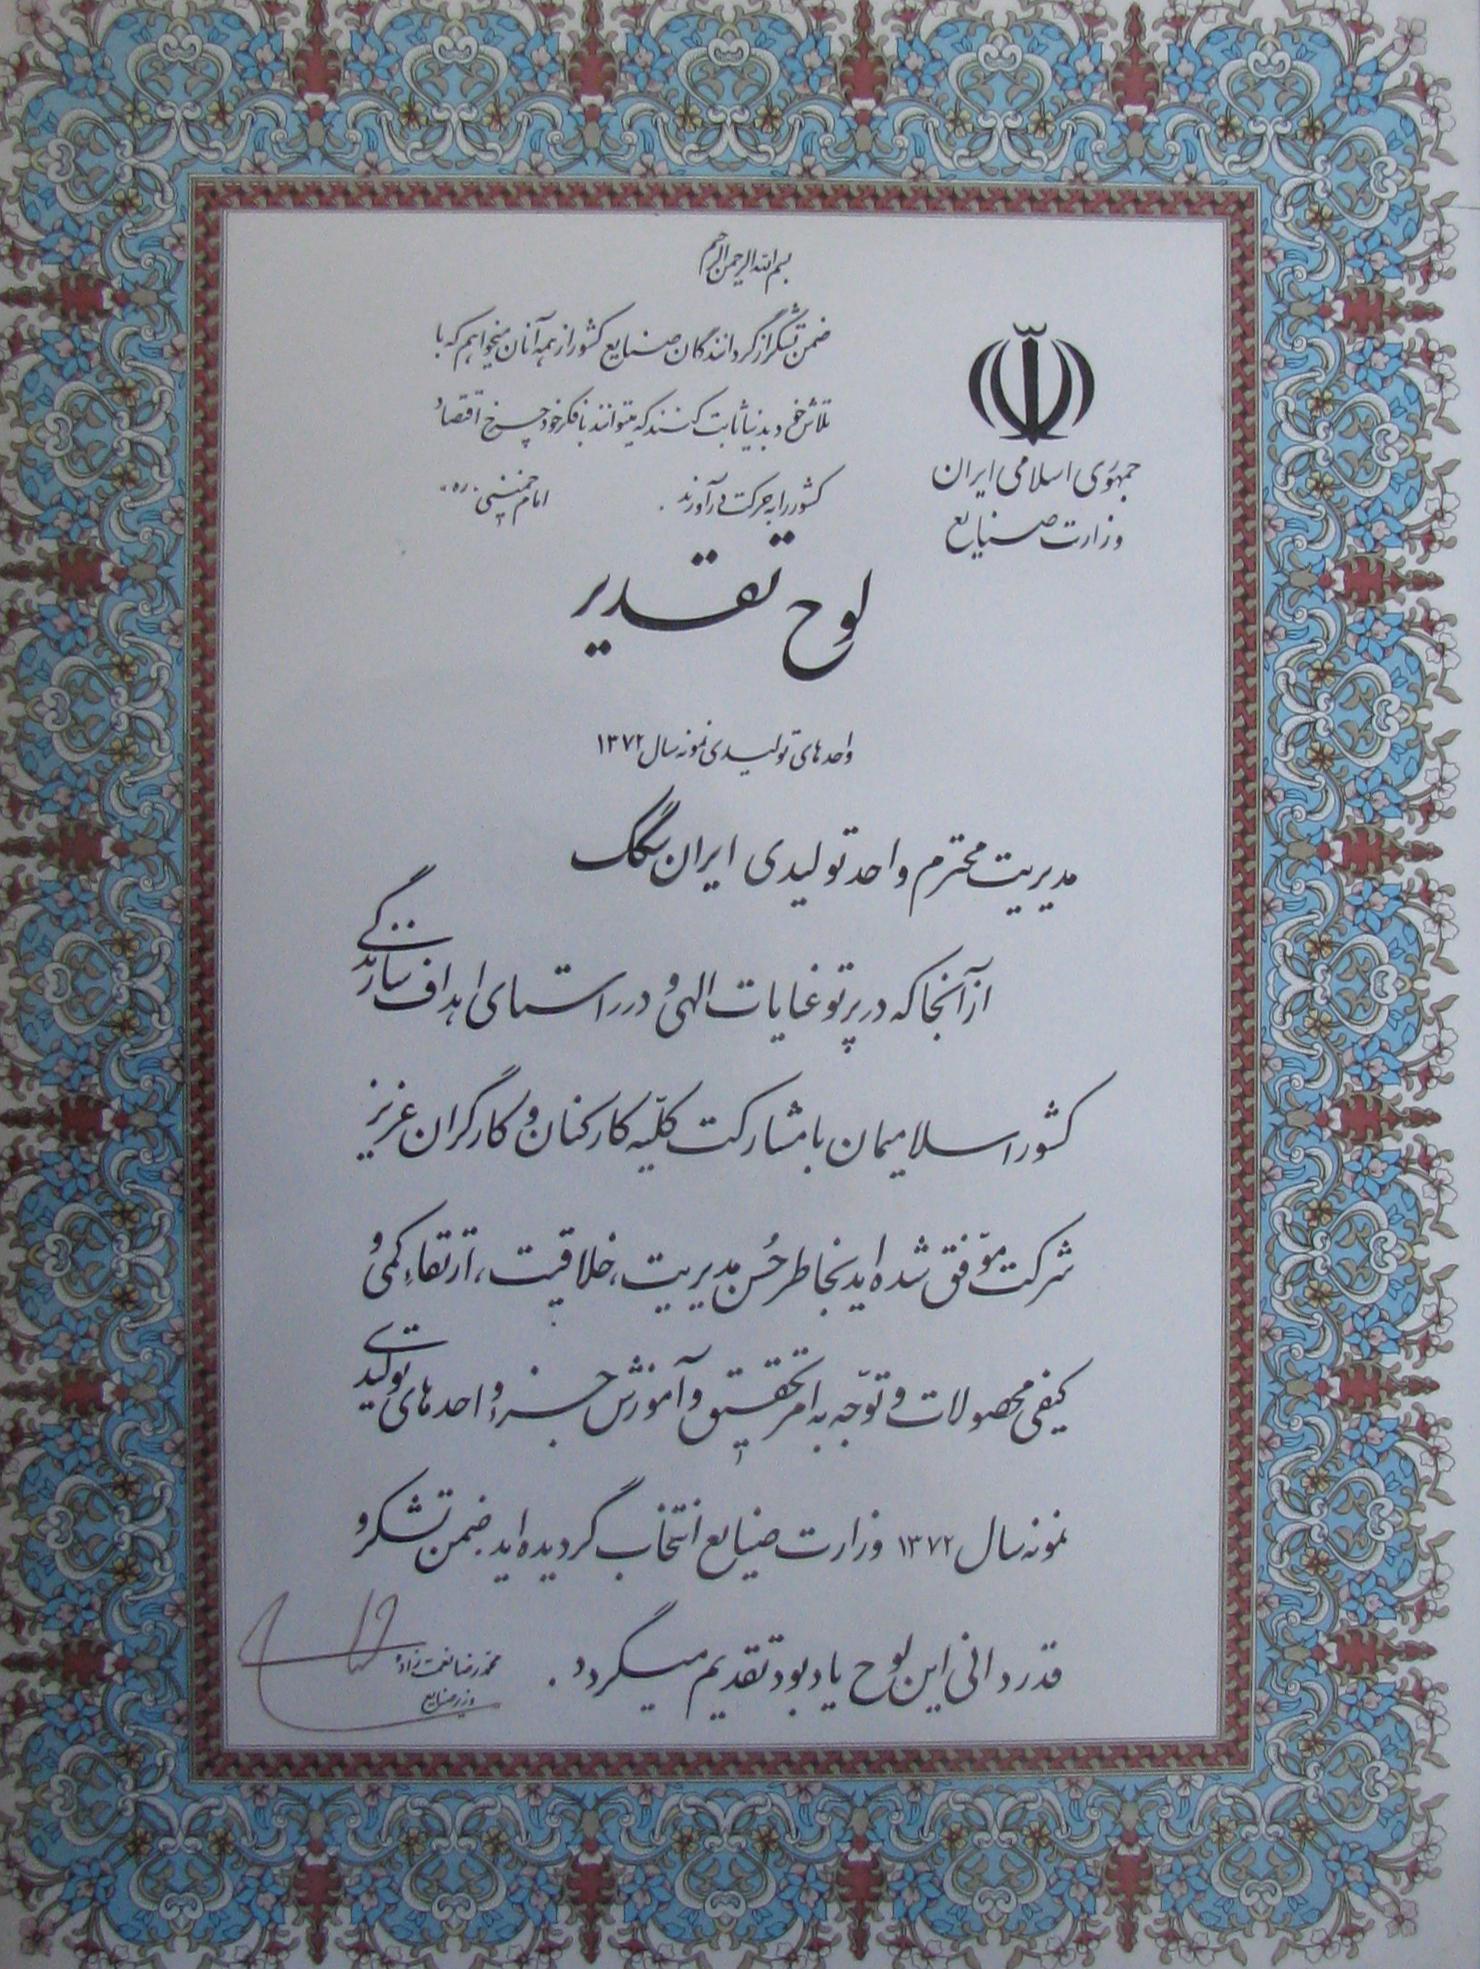 بسم الله الرحمن الرحیم
ضمن تشکر از گردانندگان صنایع کشور از همه آنان میخواهم که با
تلاش خود بدنیا ثابت کنند که میتوانند با فکر خود چرخ اقتصاد
کشور را به حرکت درآورند . امام خمینی «ره»
جمهوری اسلامی ایران
وزارت صنایع
لوح تقدیر
واحدهای تولیدی نمونه سال ۱۳۷۲
مدیریت محترم واحد تولیدی ایران سگک
از آنجا که در پرتو عنایات الهی و در راستای اهداف سازندگی
کشور اسلامیمان با مشارکت کلیّه کارکنان و کارگران عزیز
شرکت موّفق شده اید بخاطر حُسن مدیریت، خلاقیت، ارتقاءِ کمی و
کیفی محصولات و توّجه به امر تحقیق و آموزش جزء واحدهای تولیدی
نمونه سال ۱۳۷۲ وزارت صنایع انتخاب گردیده اید ضمن تشکر و
قدردانی این لوح یادبود تقدیم میگردد .
محمدرضا نعمت زاده
وزیر صنایع